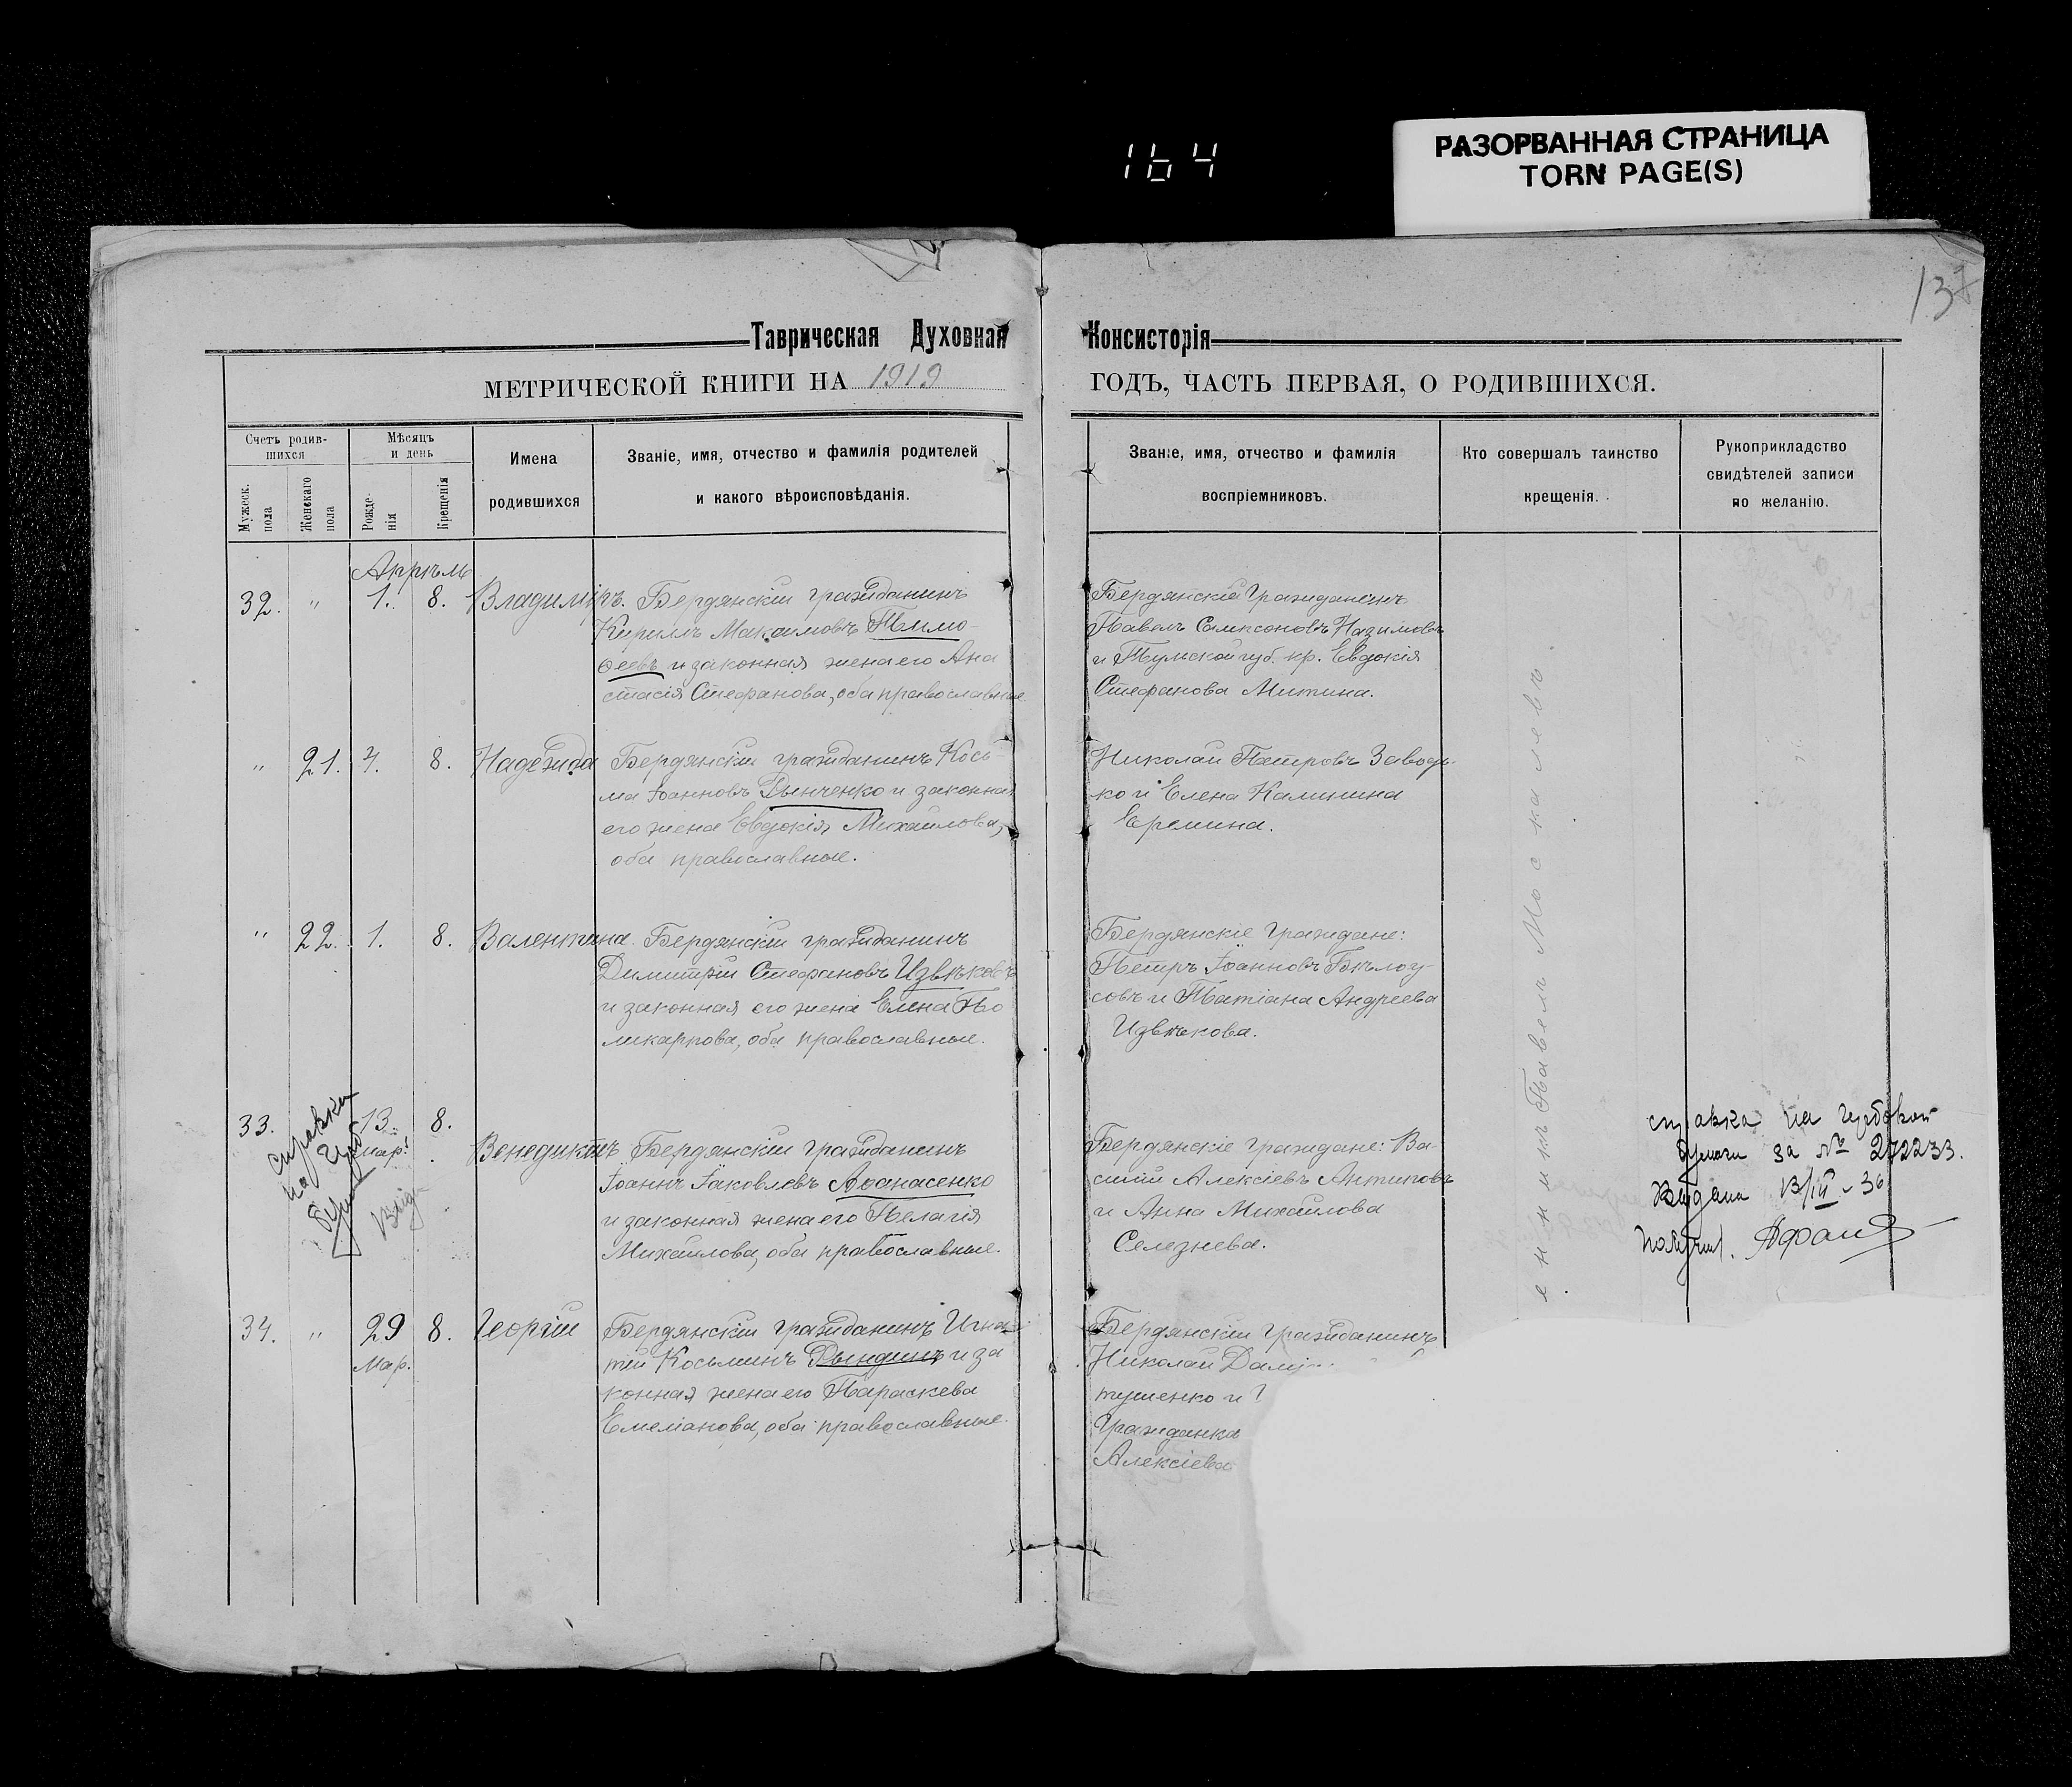 164
РАЗОРВАННАЯ СТРАНИЦА
TORN PAGE(S)
137
Таврическая Духовная Консисторія
МЕТРИЧЕСКОЙ КНИГИ НА 1919 ГОДЪ, ЧАСТЬ ПЕРВАЯ, О РОДИВШИХСЯ.
Счетъ родив-
шихся
Мужеск.
пола
Женскаго
пола
Мѣсяцъ
и день
Рожде-
нія
Крещенія
Имена
родившихся
Званіе, имя, отчество и фамилія родителей
и какого вѣроисповѣданія.
Званіе, имя, отчество и фамилія
воспріемниковъ.
Кто совершалъ таинство
крещенія.
Рукоприкладство
свидѣтелей записи
по желанію.
Апрѣль
32. " 1. 8. Владиміръ.
Бердянскій гражданинъ
Кириллъ Максимовъ Тимо-
ѳеевъ и законная жена его Ана
стасія Стефанова, оба православные
Бердянскій Гражданинъ
Павелъ Самсоновъ Назимовъ
и Тульской губ. кр. Евдокія
Стефанова Митина.
" 21. 7. 8. Надежда
Бердянскій гражданинъ Кось-
ма Іоанновъ Дынченко и законная
его жена Евдокія Михайлова,
оба православные.
Николай Петровъ Заводь-
ко и Елена Калинина
Еремина.
" 22. 1. 8. Валентина.
Бердянскій гражданинъ
Димитрій Стефановъ Извѣковъ
и законная его жена Елена По
ликарпова, оба православные.
Бердянскіе Граждане:
Петръ Іоанновъ Бѣлоу-
совъ и Татіана Андреева
Извѣкова.
33. 13. 8.
Мар.
Венедиктъ
Бердянскій гражданинъ
Іоаннъ Іаковлевъ Аѳанасенко
и законная жена его Пелагія
Михайлова, оба православные.
Бердянскіе граждане: Ва-
силій Алексіевъ Антиповъ
и Анна Михайлова
Селезнева.
справки
на
34. " 29 8. Георгій
Мар.
Бердянскій гражданинъ Игна-
тій Косьминъ Дындинъ и за
конная жена его Параскева
Емеліанова, оба православные.
Бердянскій гражданинъ
Николай
тушенко и
Гражданка
Алексіева
енникъ Павелъ Москалевъ.
справка на гербовой
бумаги за № 272233.
Выдана 13/III - 36
получил. Афана